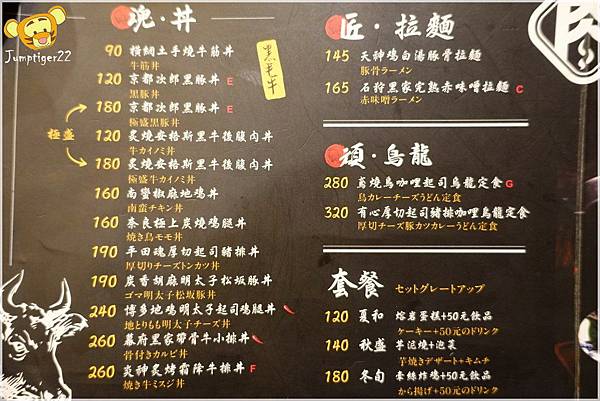 Jumptiger22
魂・丼
90 橫綱土手燒牛筋丼
牛筋丼
黑毛牛
120 京都次郎黑豚丼 E
黒豚丼
極盛
180 京都次郎黑豚丼 E
極盛黒豚丼
120 炙燒安格斯黑牛後腹內丼
牛カイノミ丼
180 炙燒安格斯黑牛後腹內丼
極盛牛カイノミ丼
160 南蠻椒麻地鶏丼
南蛮チキン丼
160 奈良極上炭燒鶏腿丼
焼き鳥モモ丼
190 平田魂厚切起司豬排丼
厚切りチーズトンカツ丼
190 炭香胡麻明太子松坂豚丼
ゴマ明太子松坂豚丼
240 博多地鶏明太子起司鶏腿丼
地とりもも明太子チーズ丼
260 幕府黑家帶骨牛小排丼
骨付きカルビ丼
260 炎神炙烤霜降牛排丼 F
焼き牛ミスジ丼
匠・拉麵
145 天神鶏白湯豚骨拉麵
豚骨ラーメン
165 石狩黑家完熟赤味噌拉麵 C
赤味噌ラーメン
頑・烏龍
280 鳥燒烏咖哩起司烏龍定食 G
鳥カレーチーズうどん定食
320 有心厚切起司豬排咖哩烏龍定食
厚切チーズ豚カツカレーうどん定食
套餐 セットグレートアップ
120 夏和 熔岩蛋糕+50元飲品
ケーキー+50元のドリンク
140 秋盛 芋泥燒+泡菜
芋焼きデザート+キムチ
180 冬旬 牽絲炸鶏+50元飲品
から揚げ+50元のドリンク